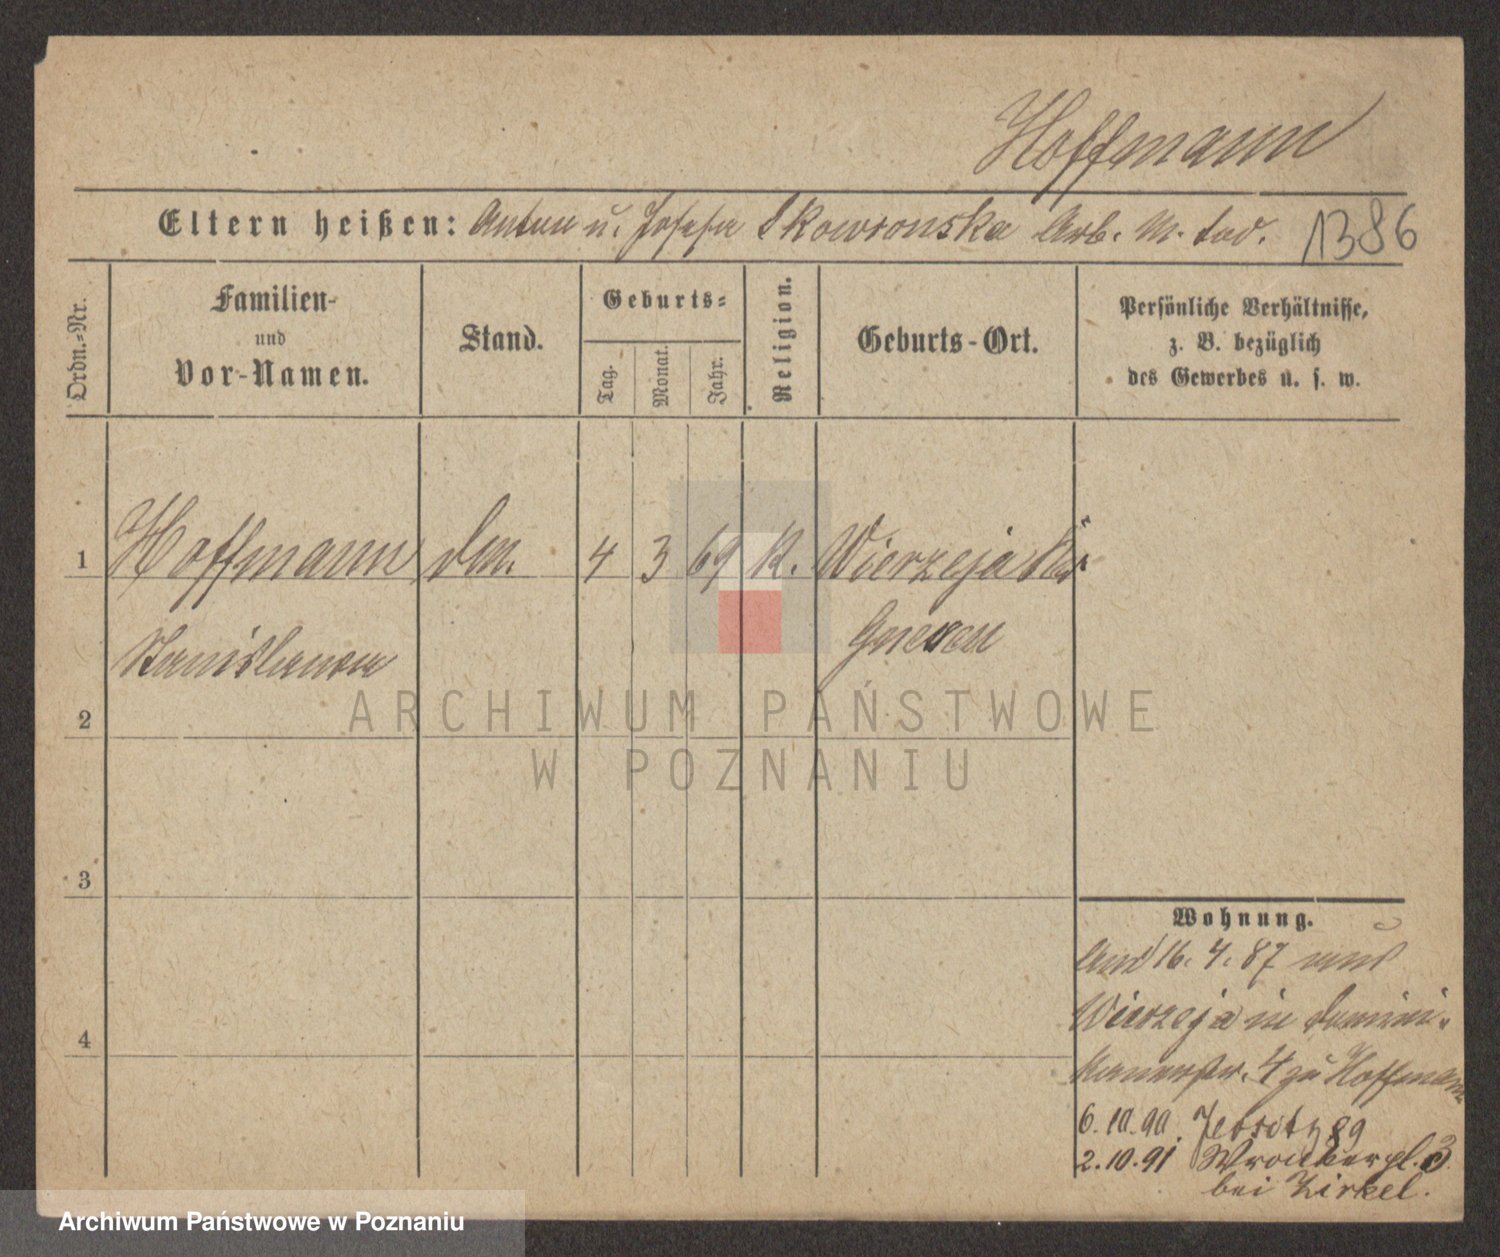 Hoffmann
Eltern heißen: Anton u. Josefa Skowronska Arb. M. tod. 1386
Ordn.-Nr.
Familien-
und
Vor-Namen.
Stand.
Geburts-
Tag.
Monat.
Jahr.
Religion.
Geburts-Ort.
Persönliche Verhältnisse,
z. B. bezüglich
des Gewerbes u. s. w.
1 Hoffmann 4 3 69 K. Wierzeja Kr.
Stanislawa Gnesen
2
ARCHIWUM PAŃSTWOWE
W POZNANIU
3
4
Wohnung.
16. 4. 87 aus
Wierzeja in Domini-
kanerstr. 4 zu Hoffmann
6.10.90. Jersitz 89
2.10.91 Wronkerpl. 3.
bei Zirkel.
Archiwum Państwowe w Poznaniu